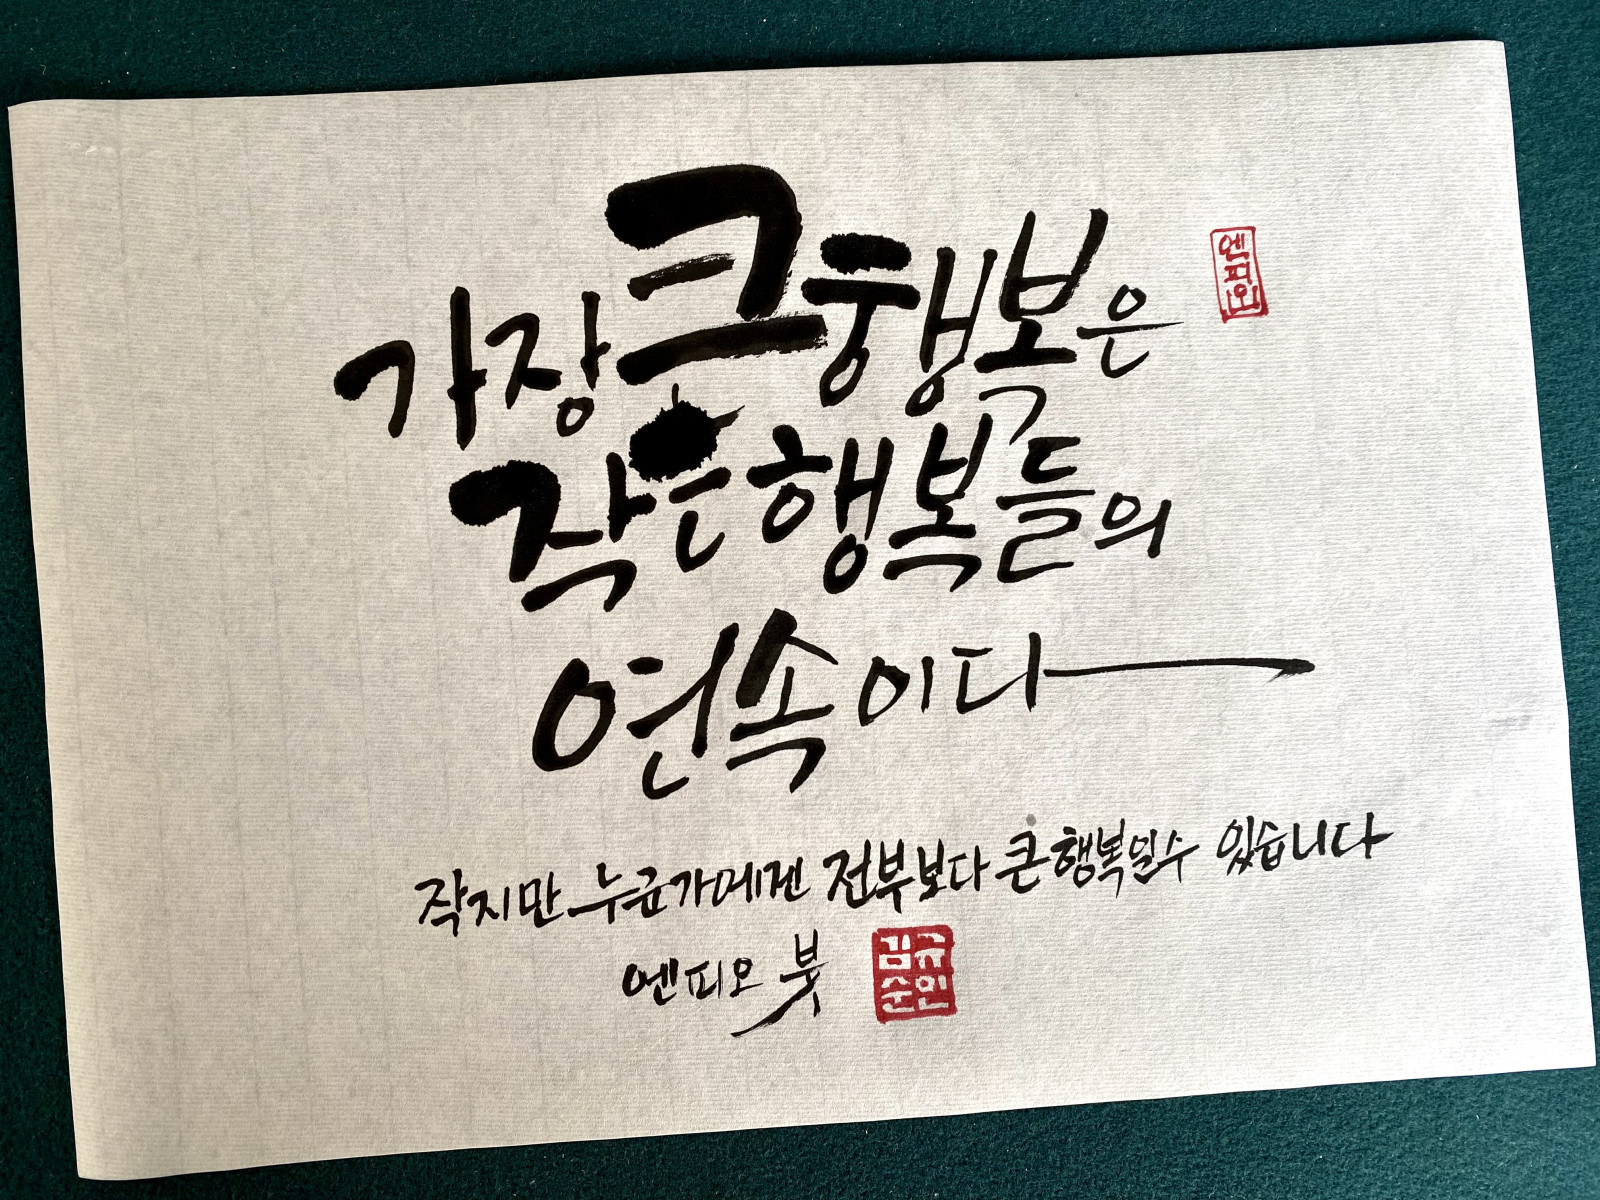 가장 큰 행복은
작은 행복들의
연속이다
작지만 누군가에겐 전부보다 큰 행복일수 있습니다
엔피오 붓
엔피오